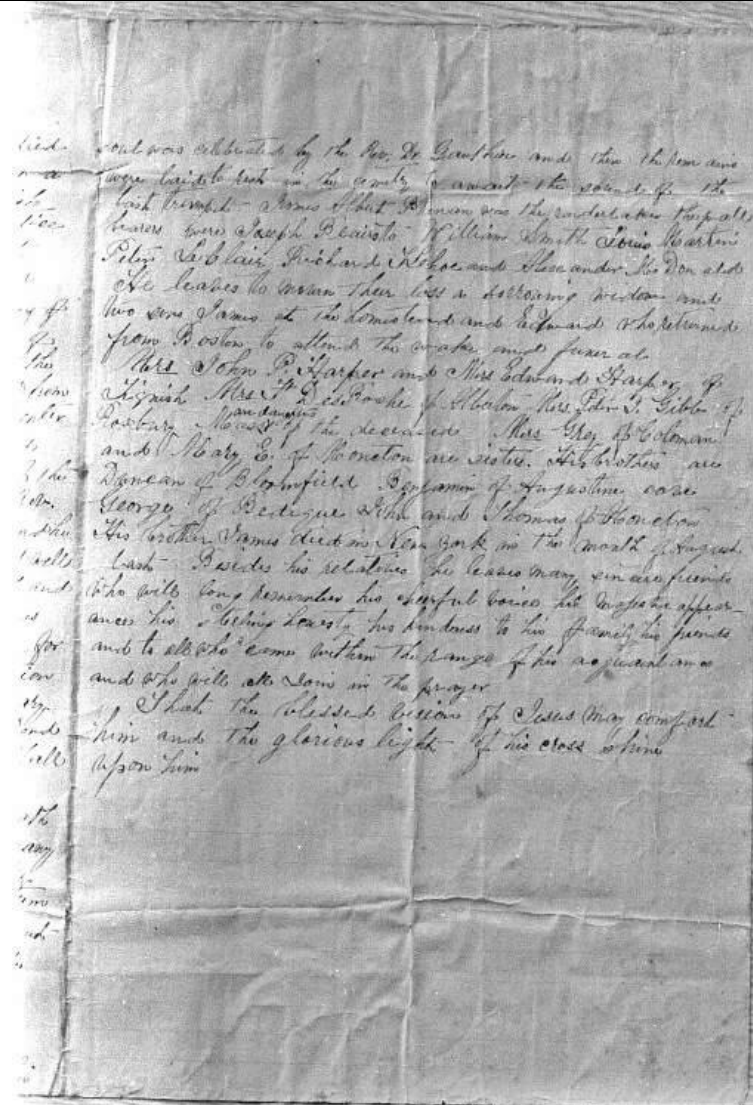 soul was celebrated by the Rev. Dr. Gauthier and then the remains
were laid to rest in the cemetry to await the sound of the
last trumpet James Albert was the undertaker the pall
bearers were Joseph William Smith Louis Martin
Peter LeClair Richard Kehoe and Alexander McDonald
He leaves to mourn their loss a sorrowing widow and
two sons James at the homestead and Edward who returned
from Boston to attend the wake and funeral
Mrs John P. Harper and Mrs Edward Harper of
Tignish Mrs DesRoche of Mrs Peter J. Gibbs of
Roxbury Mass are daughters of the deceased Mrs Grey of Coloman
and Mary E. of Moncton are sisters. His brothers are
Duncan of Bloomfield Benjamin of Augustine cove
George of Bedeque John and Thomas of Moncton
His brother James died in New York in the month of August
last Besides his relatives he leaves many sincere friends
who will long remember his cheerful voice his majestic appear-
ances his sterling honesty his kindness to his family his friends
and to all who came within the range of his acquaintance
and who will all Join in the prayer
That the blessed vision of Jesus may comfort
him and the glorious light of his cross shine
upon him